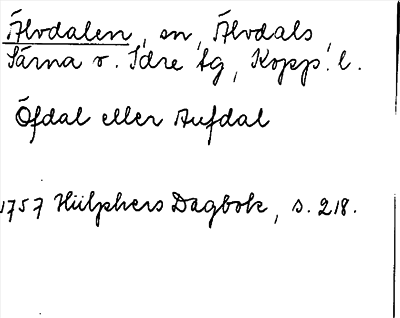 Älvdalen, sn, Älvdals,
Särna o. Idre tg, Kopp. l.
Öfdal eller Aufdal
1757 Hülphers Dagbok, s. 218.